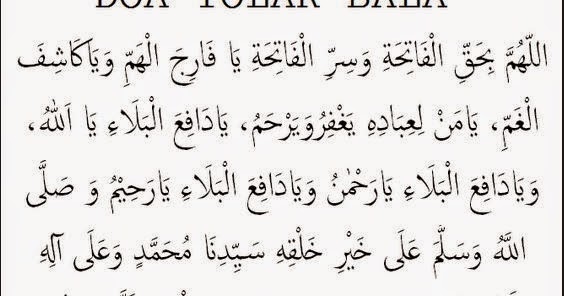 DOA TOLAK BALA
اللّهُمَّ بِحَقِّ الْفَاتِحَةِ وَسِرِّ الْفَاتِحَةِ يَا فَارِجَ الْهَمِّ وَيَاكَاشِفَ
الْغَمِّ، يَامَنْ لِعِبَادِهِ يَغْفِرُوَيَرْحَمُ، يَادَافِعَ الْبَلَاءِ يَا اَللهُ،
وَيَادَافِعَ الْبَلَاءِ يَارَحْمٰنُ وَيَادَافِعَ الْبَلَاءِ يَارَحِيْمُ وَ صَلَّى
اللَّهُ وَسَلَّمَ عَلَى خَيْرِ خَلْقِهِ سَيِّدِنَا مُحَمَّدٍ وَعَلَى آلِهِ